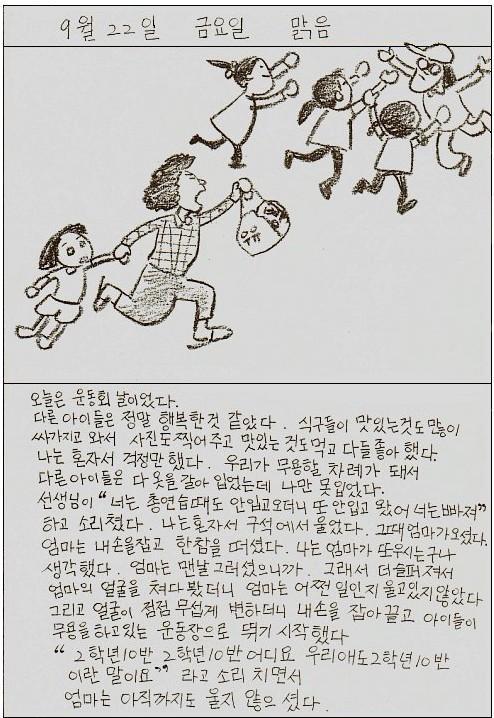 9월 22일 금요일 맑음
오늘은 운동회 날이었다.
다른 아이들은 정말 행복한것 같았다. 식구들이 맛있는것도 많이
싸가지고 와서 사진도 찍어주고 맛있는 것도 먹고 다들 좋아 했다.
나는 혼자서 걱정만 했다. 우리가 무용할 차례가 돼서
다른 아이들은 다 옷을 갈아 입었는데 나만 못입었다.
선생님이 "너는 총연습때도 안입고오더니 또 안입고 왔어 너는 빠져"
하고 소리쳤다. 나는 혼자서 구석에서 울었다. 그때 엄마가 오셨다.
엄마는 내 손을 잡고 한참을 떠셨다. 나는 엄마가 또우시는구나
생각했다. 엄마는 맨날 그러셨으니까. 그래서 더 슬퍼져서
엄마의 얼굴을 쳐다 봤더니 엄마는 어쩐 일인지 울고있지 않았다
그리고 얼굴이 점점 무섭게 변하더니 내 손을 잡아 끌고 아이들이
무용을 하고있는 운동장으로 뛰기 시작했다
"2학년10반 2학년10반 어디요 우리애도 2학년10반
이란 말이요" 라고 소리 치면서
엄마는 아직까지도 울지 않으 셨다.